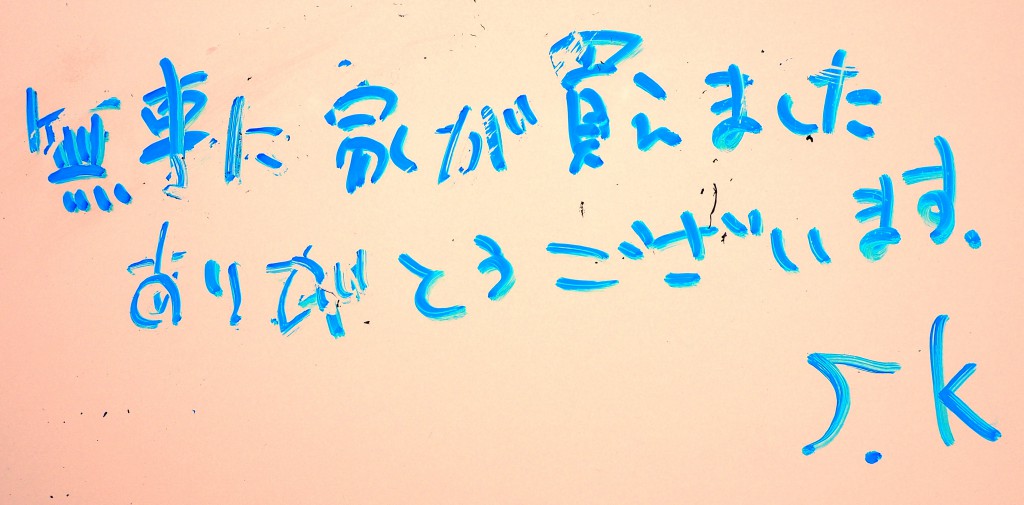 無事に家が買えました
ありがとうございます.
S.K